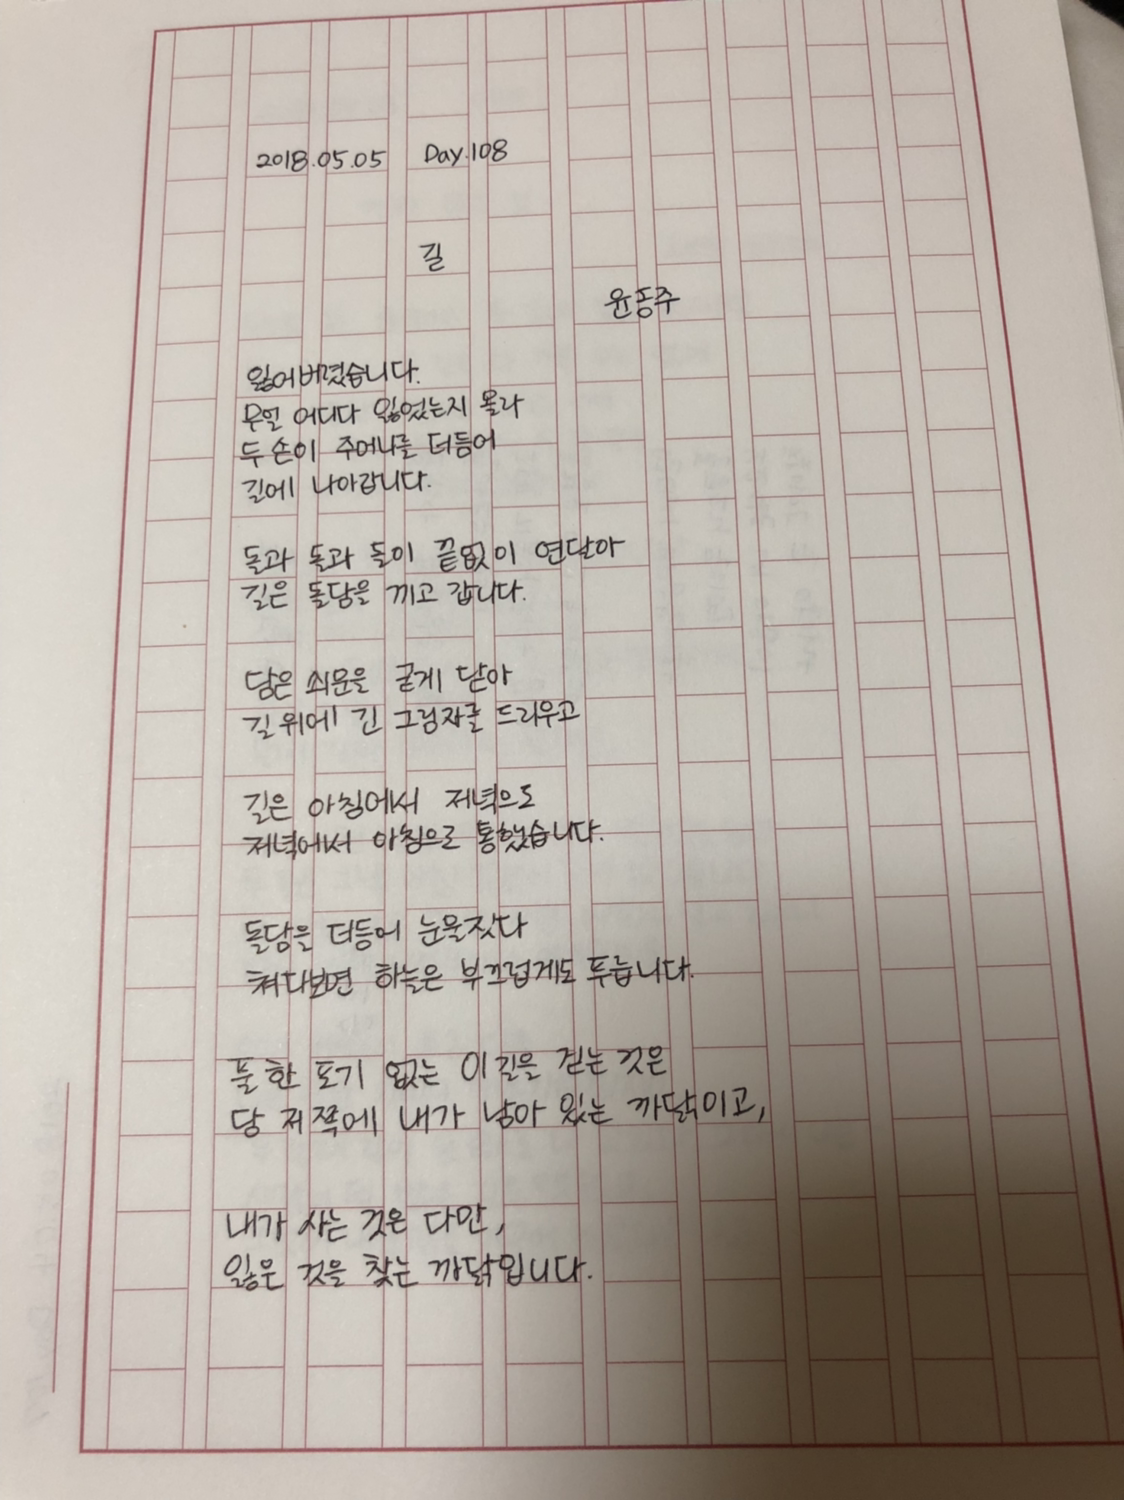 2018.05.05 Day.108
길
윤동주
잃어버렸습니다.
무얼 어디다 잃었는지 몰라
두 손이 주머니를 더듬어
길에 나아갑니다.
돌과 돌과 돌이 끝없이 연달아
길은 돌담을 끼고 갑니다.
담은 쇠문을 굳게 닫아
길 위에 긴 그림자를 드리우고
길은 아침에서 저녁으로
저녁에서 아침으로 통했습니다.
돌담을 더듬어 눈물짓다
쳐다보면 하늘은 부끄럽게도 푸릅니다.
풀 한 포기 없는 이 길을 걷는 것은
담 저쪽에 내가 남아 있는 까닭이고,
내가 사는 것은 다만,
잃은 것을 찾는 까닭입니다.